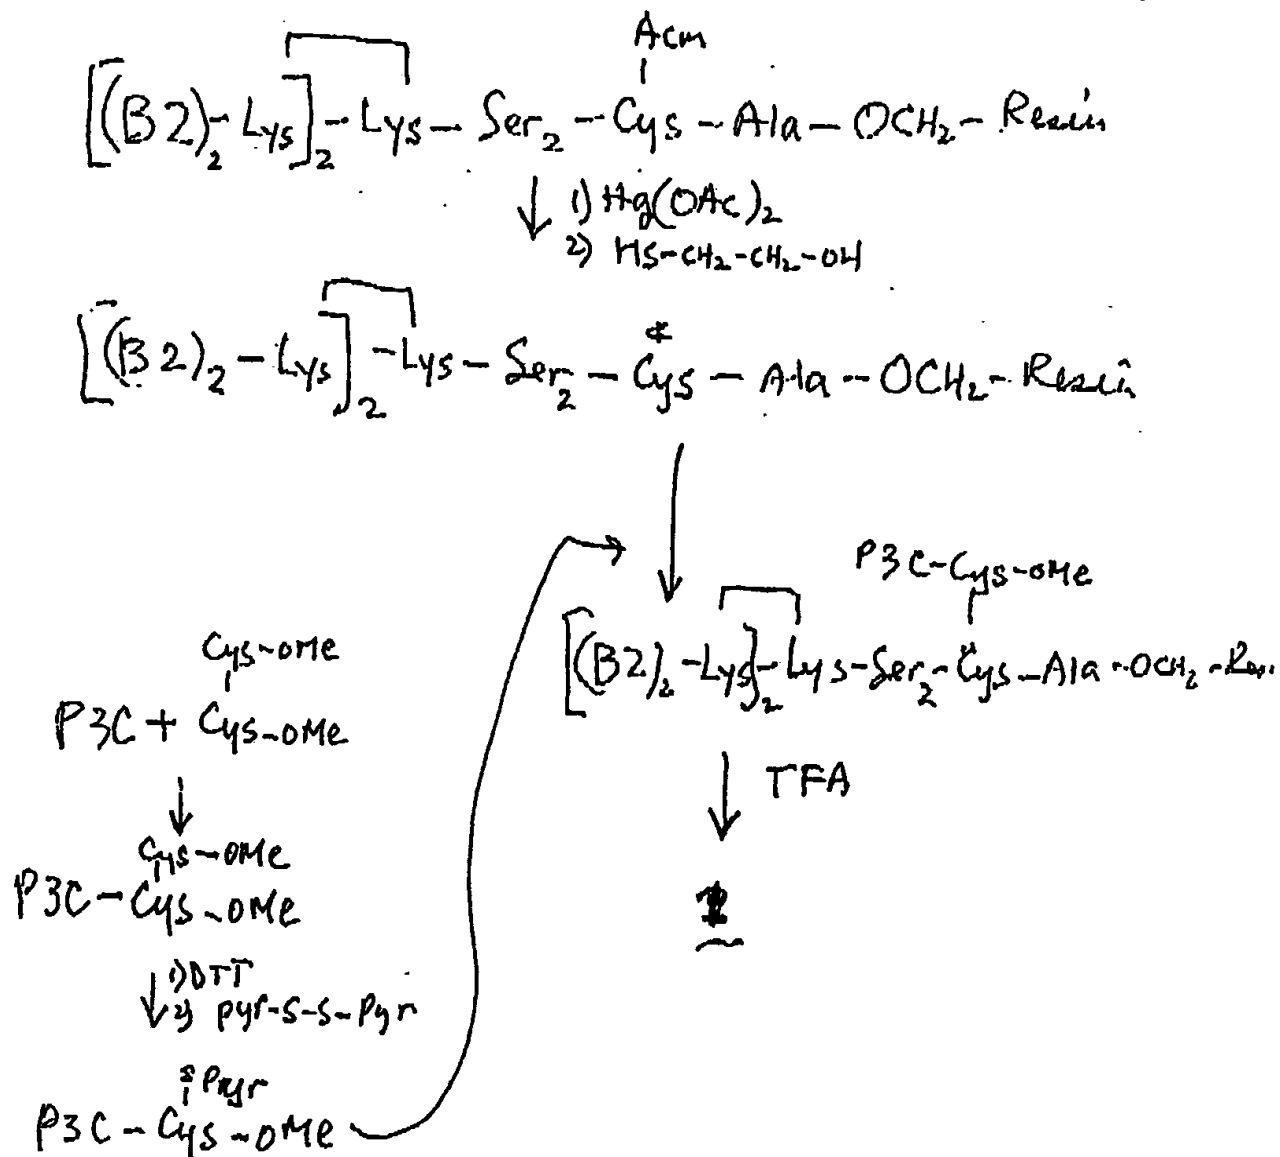 Acm
[(B2)₂-Lys]₂-Lys-Ser₂-Cys-Ala-OCH₂-Resin
1) Hg(OAc)₂
2) HS-CH₂-CH₂-OH
[(B2)₂-Lys]₂-Lys-Ser₂-Cys-Ala-OCH₂-Resin
P3C-Cys-OMe
[(B2)₂-Lys]₂-Lys-Ser₂-Cys-Ala-OCH₂-
TFA
Cys-OMe
P3C + Cys-OMe
Cys-OMe
P3C-Cys-OMe
1) DTT
2) pyr-S-S-Pyr
P3C-Cys-OMe